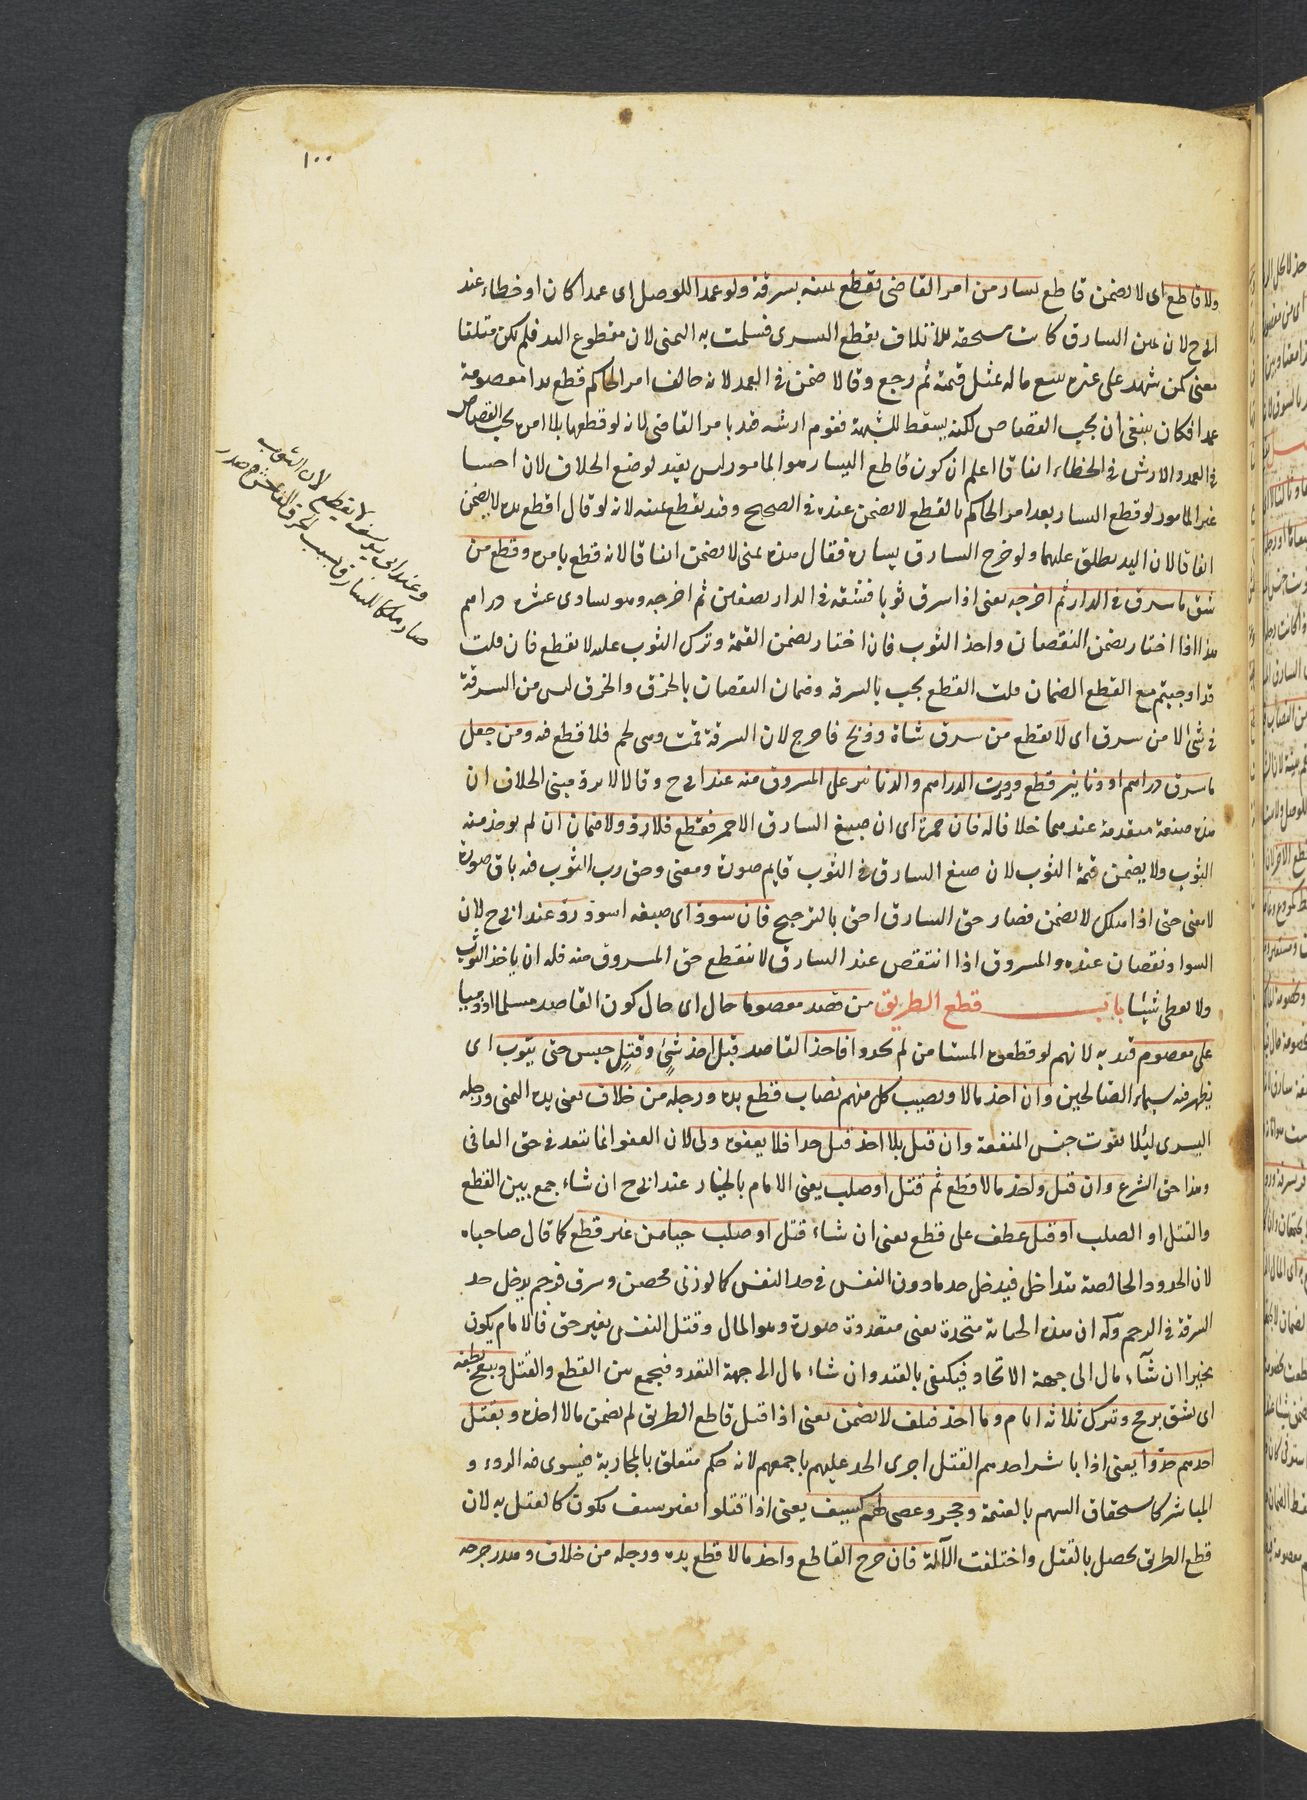 ١٠٠
ولا قاطع اى لا يضمن قاطع يسار من امر القاضى بقطع يمينه بسرقة ولو عمدا للوصل اى عمدا كان او خطاء عند
ابى ح لان يمين السارق كانت مستحقه للاتلاف بقطع اليسرى فسلمت به اليمنى لان مقطوع اليد فلم يكن متلفا
معنى كمن شهد على غيره ببيع ماله بمثل قيمته ثم رجع وقالا ضمن فى العمد لانه خالف امر الحاكم قطع يدا معصومة
عمدا فكان ينبغى ان يجب القصاص لكنه يسقط للشبهة فتقوم ارشه قيد بامر القاضى لانه لو قطعها بلا امره يجب القصاص
فى العمد والارش فى الخطاء اتفاقا اعلم ان كون قاطع اليسار هو المامور ليس بقيد لوضع الخلاف لان احسا
غير المامور لو قطع اليسار بعد امر الحاكم بالقطع لا يضمن عنده فى الصحيح وقيد بقطع يمينه لانه لو قال اقطع يده لا يضمن
اتفاقا لان اليد يطلق عليهما ولو خرج السارق يساره فقال هذه يمنى لا يضمن اتفاقا لانه قطع بامره وقطع من
شق ما سرق فى الدار ثم اخرجه يعنى اذا سرق ثوبا فشقه فى الدار نصفين ثم اخرجه وهو يساوى عشره دراهم
هذا اذا اختار يضمن النقصان واخذ الثوب فان اختار يضمن القيمة وترك الثوب عليه لا يقطع فان قلت
قد اوجبتم مع القطع الضمان قلت القطع يجب بالسرقه وضمان النقصان بالخرق والخرق ليس من السرقة
فى شى لا من سرق اى لا يقطع من سرق شاة وذبح فاخرج لان السرقة تمت وهى لحم فلا قطع فيه ومن جعل
ما سرق دراهم او دنانير قطع وردت الدراهم والدنانير على المسروق منه عند ابى ح وقالا لا يرد مبنى الخلاف ان
هذه صنعة متقدمة عندهما خلافا له فان حمره اى ان صبغ السارق الاحمر فقطع فلا رد ولا ضمان ان لم يوخذ منه
الثوب ولا يضمن قيمة الثوب لان صبغ السارق فى الثوب قايم صورة ومعنى وحق رب الثوب فيه باق صورة
لا معنى حتى اذا هلك لا يضمن فصار حق السارق احق بالترجيح فان سود اى صبغه اسود رد عند ابى ح لان
السواد نقصان عنده والمسروق اذا انتقص عند السارق لا ينقطع حق المسروق منه فله ان ياخذ الثوب
ولا يعطى شيئا باب قطع الطريق من قصد معصوما حال اى حال كون القاصد مسلما او ذميا
على معصوم قيد به لانهم لو قطعوه المستامن لم يحدوا فاخذ القاصد قبل اخذ شئ وقتل حبس حتى يتوب اى
يظهر فيه سيماء الصالحين وان اخذ مالا ونصيب كل منهم نصاب قطع يده ورجله من خلاف يعنى يده اليمنى ورجله
اليسرى ليلا يفوت جنس المنفعة وان قتل بلا اخذ قتل حدا فلا يعفوه ولى لان العفو انما ينفد فى حق العافى
وهذا حق الشرع وان قتل واخذ مالا قطع ثم قتل او صلب يعنى الامام بالخيار عند ابى ح ان شاء جمع بين القطع
والقتل او الصلب او قتل عطف على قطع يعنى ان شاء قتل او صلب حيا من غير قطع كما قال صاحباه
لان الحدود الخالصة تتداخل فيدخل حد ما دون النفس فى حد النفس كما لو زنى محصن وسرق فرجم يدخل حد
السرقة فى الرجم وله ان هذه الجناية متحدة بمعنى متعددة صورة وهو المال وقتل النفس بغير حق فالامام يكون
مخيرا ان شاء مال الى جهة الاتحاد فيكتفى بالقتل وان شاء مال الى جهة التعدد فيجمع بين القطع والقتل ويبعج بطنه
اى يشق برمح ويترك ثلاثه ايام وما اخذ فتلف لا يضمن يعنى اذا قتل قاطع الطريق لم يضمن مالا اخذه وبقتل
احدهم حدوا يعنى اذا باشر احدهم القتل اجرى الحد عليهم باجمعهم لانه حكم متعلق بالمحاربة فيستوى فيه الردء و
المباشر كاستحقاق السهم بالغنيمة وحجر وعصى لهم كسيف يعنى اذا قتلوا بغير سيف يكون كالقتل به لان
قطع الطريق يحصل بالقتل واختلفت الآلة فان جرح القاطع واخذ مالا قطع يده ورجله من خلاف وهدر جرحه
وعند ابى يوسف لا يقطع لان الثوب
صار ملكا للسارق بسبب الخرق الفاحش صدر